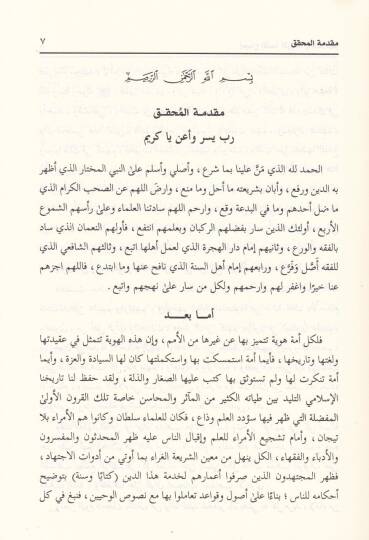 مقدمة المحقق
٧
بسم الله الرحمن الرحيم
مقدمة المُحقق
رب يسر وأعن يا كريم
الحمد لله الذي مَنَّ علينا بما شرع، وأصلي وأسلم على النبي المختار الذي أظهر
به الدين ورفع، وأبان بشريعته ما أحل وما منع، وارضَ اللهم عن الصحب الكرام الذي
ما ضل أحدهم وما في البدعة وقع، وارحم اللهم سادتنا العلماء وعلى رأسهم الشموع
الأربع، أولئك الذين سار بفضلهم الركبان وبعلمهم انتفع، فأولهم النعمان الذي ساد
بالفقه والورع، وثانيهم إمام دار الهجرة الذي لعمل أهلها اتبع، وثالثهم الشافعي الذي
للفقه أَصَّل وَفَرَّع، ورابعهم إمام أهل السنة الذي نافح عنها وما ابتدع، فاللهم اجزهم
عنا خيرًا واغفر لهم وارحمهم ولكل من سار على نهجهم واتبع.
أما بعد
فلكل أمة هوية تتميز بها عن غيرها من الأمم، وإن هذه الهوية تتمثل في عقيدتها
ولغتها وتاريخها، فأيما أمة استمسكت بها واستكملتها كان لها السيادة والعزة، وأيما
أمة تنكرت لها ولم تستوثق بها كتب عليها الصغار والذلة، ولقد حفظ لنا تاريخنا
الإسلامي التليد بين طياته الكثير من المآثر والمحاسن خاصة تلك القرون الأولى
المفضلة التي ظهر فيها سؤدد العلم وذاع، فكان للعلماء سلطان وكانوا هم الأمراء بلا
تيجان، وأمام تشجيع الأمراء للعلم وإقبال الناس عليه ظهر المحدثون والمفسرون
والأدباء والفقهاء، الكل ينهل من معين الشريعة الغراء بما أوتي من أدوات الاجتهاد،
فظهر المجتهدون الذين صرفوا أعمارهم لخدمة هذا الدين (كتابًا وسنة) بتوضيح
أحكامه للناس؛ بناءً على أصول وقواعد تعاملوا بها مع نصوص الوحيين، فنبغ في كل